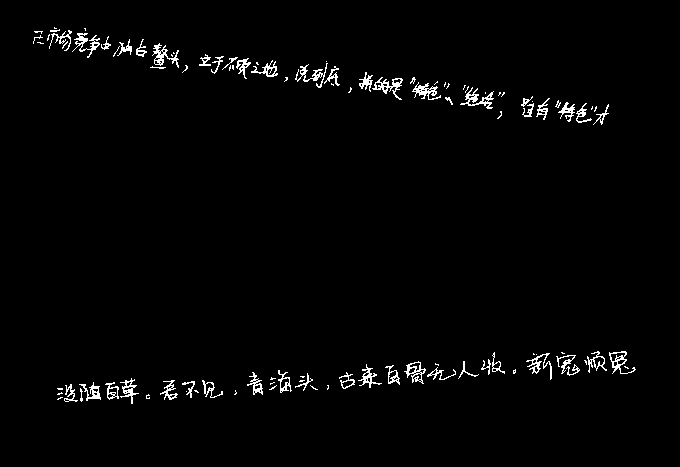 在市场竞争中独占鳌头，立于不败之地，说到底，拼的是“特色”、“绝活”，唯有“特色”才
没随百草。君不见，青海头，古来白骨无人收。新鬼烦冤